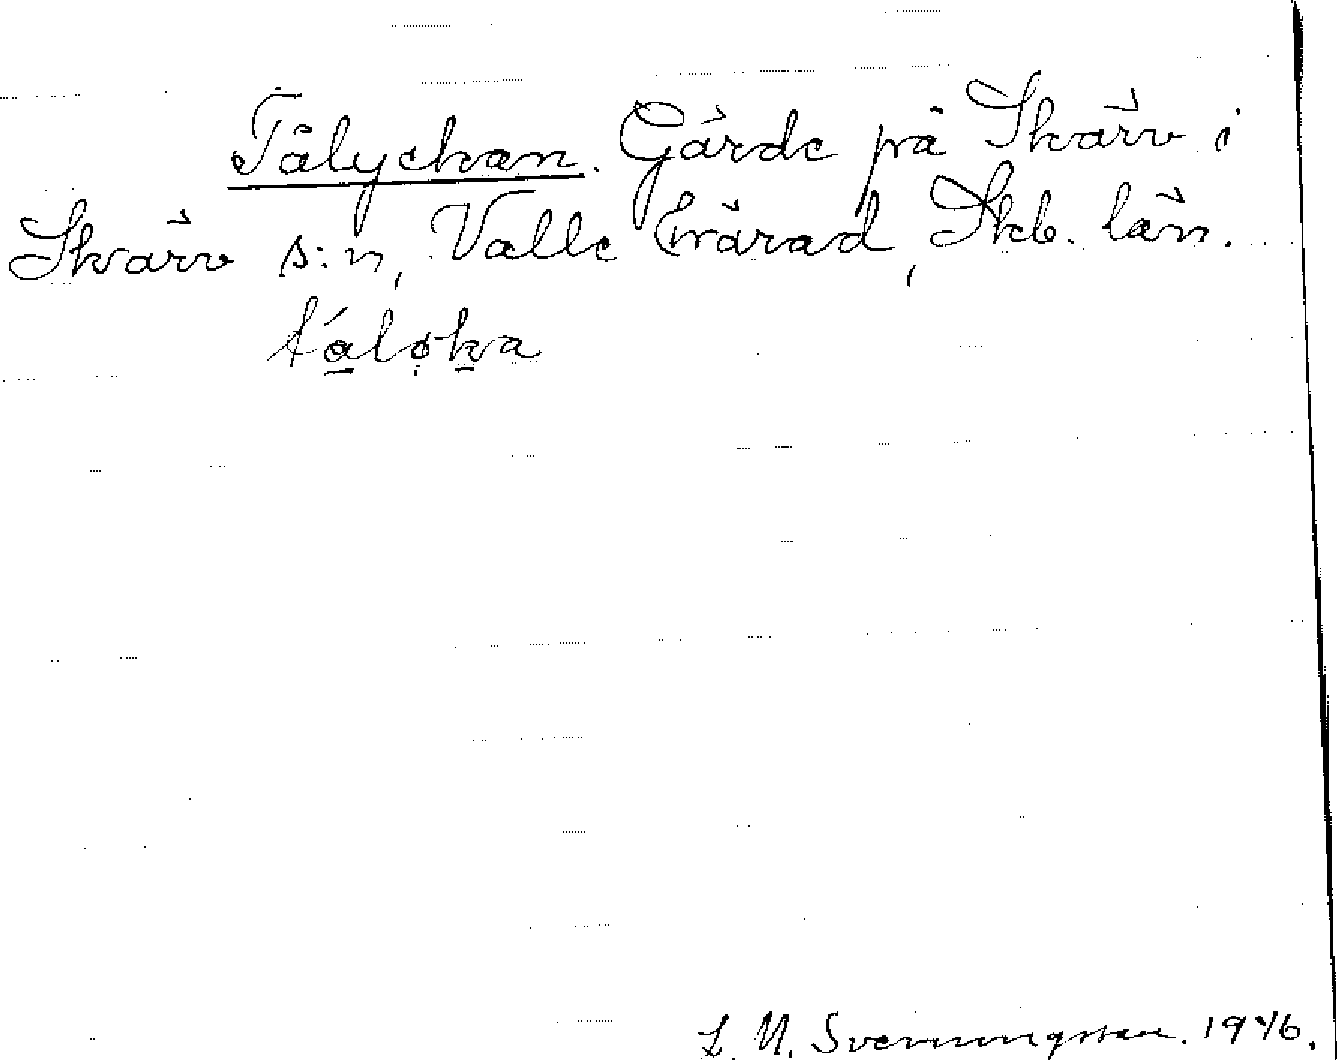 Tålyckan. Gärde på Skärv i
Skärv s:n, Valle härad, Skb. län.
L. M. Svenungsson. 1946.